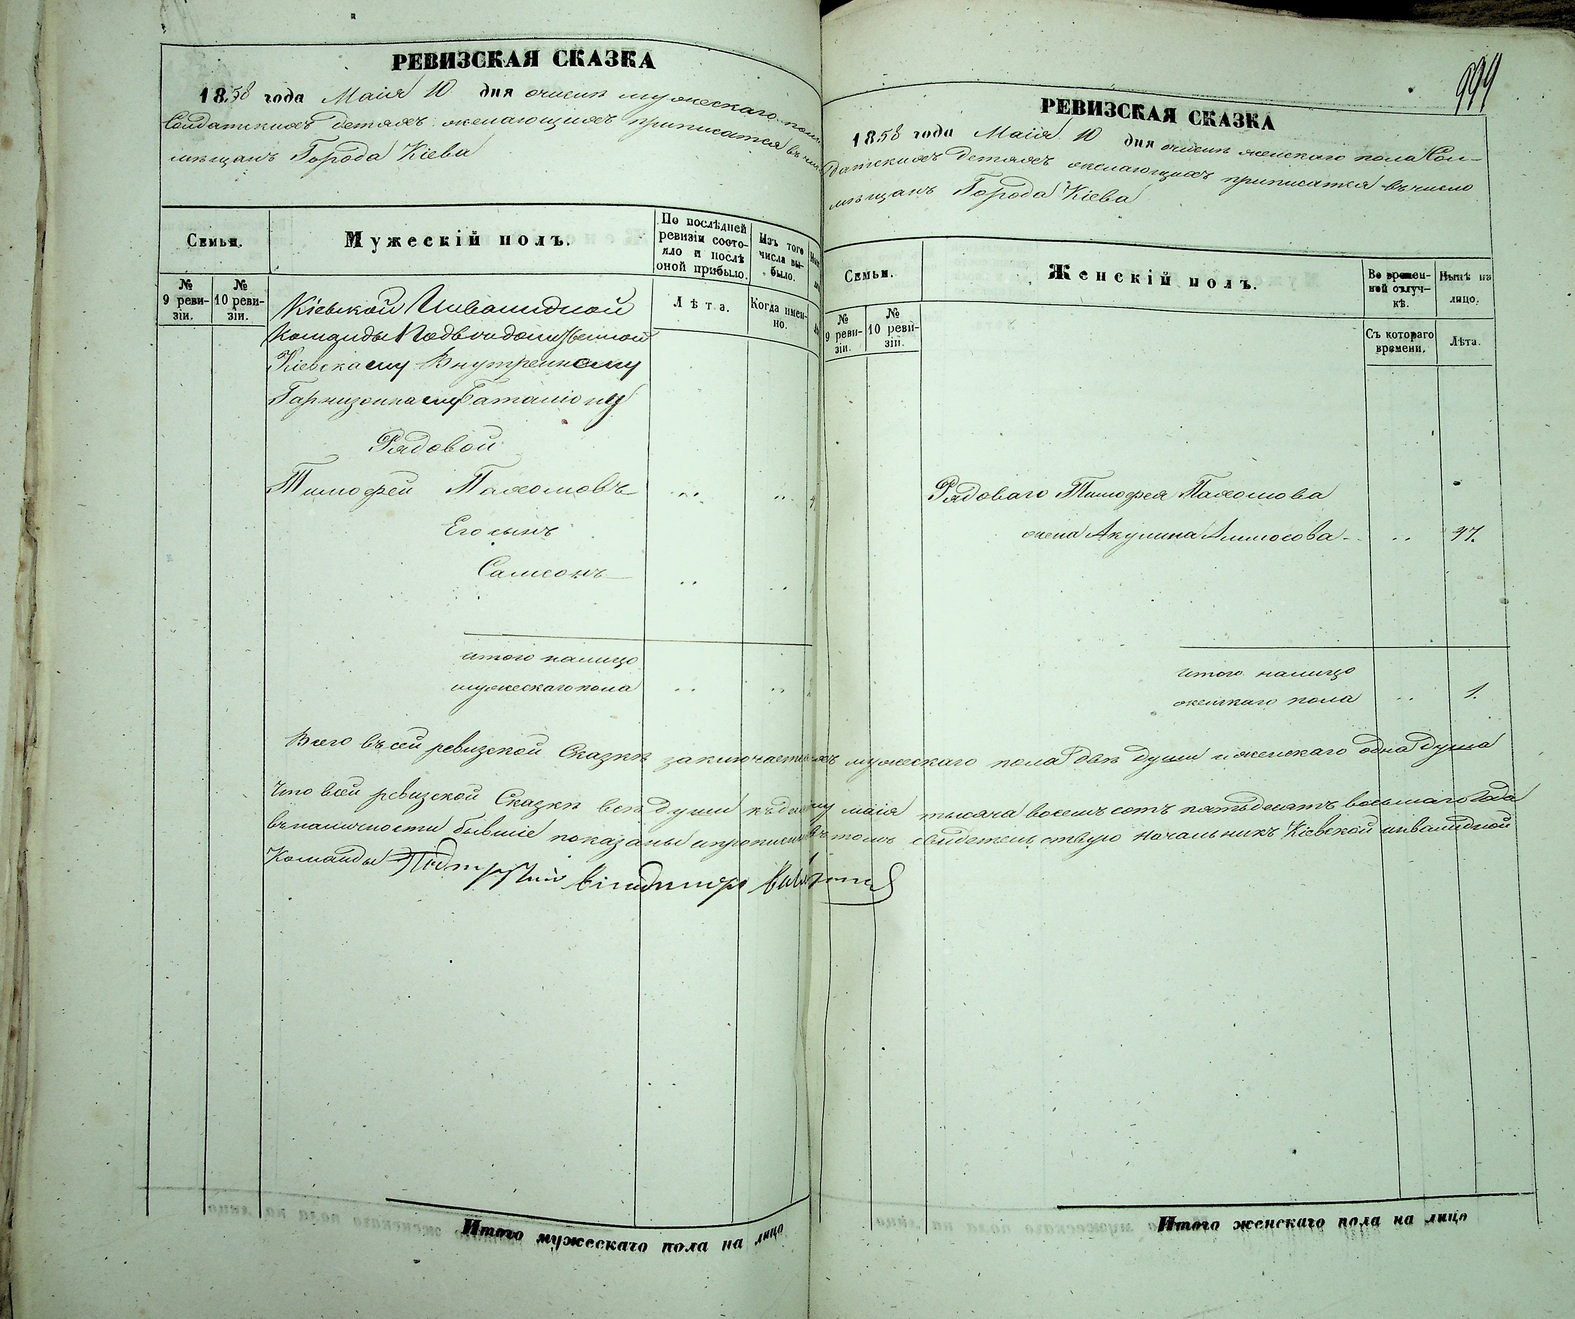 РЕВИЗСКАЯ СКАЗКА
1858 года Маія 10 дня о числѣ мужескаго пола
Солдатскихъ детяхъ желающихъ приписатся въ число
мѣщанъ Города Кіева
Семьи.
Мужескій полъ.
По послѣдней ревизіи состояло и послѣ оной прибыло.
Изъ того числа выбыло.
№ 9 ревизіи.
№ 10 ревизіи.
Лѣта.
Когда именно.
Кіевской Инвалидной
Команды Подведомственной
Кіевскому Внутреннему
Гарнизонному Баталіону
Рядовой
Тимофей Пахомовъ
Его сынъ
Самсонъ
итого налицо
мужескаго пола
Итого мужескаго пола на лицо
999
РЕВИЗСКАЯ СКАЗКА
1858 года Маія 10 дня о числѣ женскаго пола Сол-
датскихъ детяхъ желающихъ приписатся въ число
мѣщанъ Города Кіева
Семьи.
Женскій полъ.
Во временной отлучкѣ.
Нынѣ на лицо.
№ 9 ревизіи.
№ 10 ревизіи.
Съ котораго времени.
Лѣта.
Рядоваго Тимофея Пахомова
жена Акулина 47.
итого налицо
женскаго пола 1.
Всего въ сей ревизской Сказкѣ заключается мужескаго пола двѣ души и женскаго одна душа
Что в сей ревизской Сказкѣ всѣ души къ маія тысяча восемъ сотъ пятьдесятъ восьмаго Года
въ наличности бывшіе показаны и въ томъ свидетельствую Начальникъ Кіевской инвалидной
Команды
Итого женскаго пола на лицо